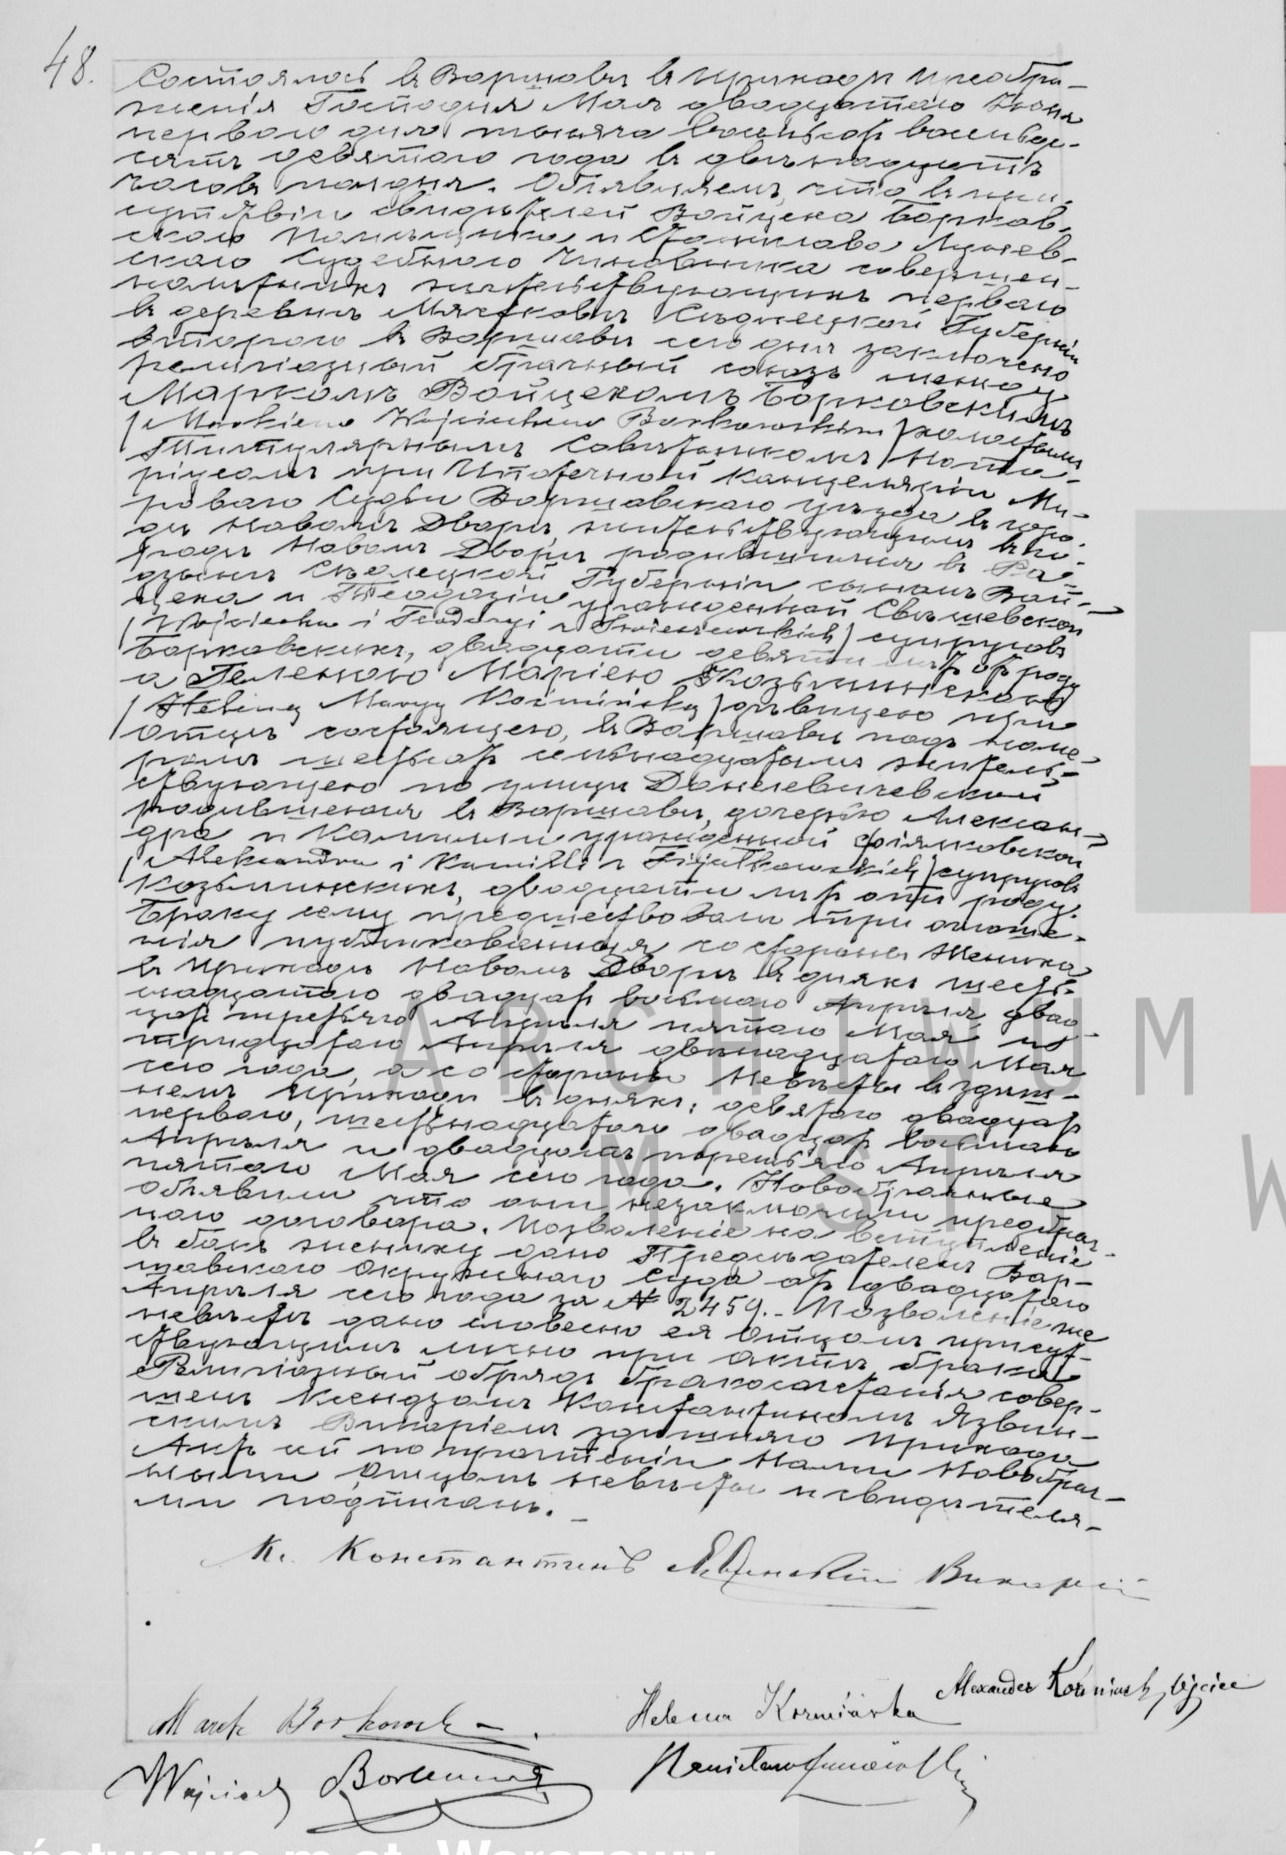 48.
Состоялось въ Варшавѣ въ Приходѣ Преобра-
женія Господня Мая двадцатаго Іюня
перваго дня тысяча восемьсотъ восемьде-
сятъ девятаго года въ двѣнадцать
часовъ полдня. Объявляемъ, что въ при-
сутствіи свидѣтелей Войцеха Борков-
скаго Помѣщика и Станислава
скаго Судебнаго Чиновника совершен-
нолѣтнихъ жительствующихъ перваго
въ деревнѣ Мястковѣ Сѣдлецкой Губерніи
втораго въ Варшавѣ сего дня заключено
религіозный брачный союзъ между
Маркомъ Войцехомъ Борковскимъ
/Markiem Wojciechem Borkowskim/ холостымъ
Титулярнымъ Совѣтникомъ Нота-
ріусомъ при Ипотечной Канцеляріи Ми-
роваго Судьи Варшавскаго уѣзда въ горо-
дѣ Новомъ Дворѣ жительствующимъ въ го-
родѣ Новомъ Дворѣ родившимся въ Ра-
дзынѣ Сѣдлецкой Губерніи сыномъ Вой-
цеха и Теодозіи урожденной Свѣшевской
/Wojciecha i Teodozyi z Świeszewskich/ супруговъ
Борковскихъ, двадцати девяти лѣтъ отъ роду
а Геленою Маріею Козьминскою
/Heleną Maryą Koźmińską/ дѣвицею при
Отцѣ состоящею, въ Варшавѣ подъ номе-
ромъ шестьсотъ семнадцатымъ житель-
ствующею по улицѣ Даниловичевской
родившеюся въ Варшавѣ, дочерью Алексан-
дра и Камиллы урожденной Фіялковской
/Aleksandra i Kamilli z Fijałkowskich/ супруговъ
Козьминскихъ, двадцати лѣтъ отъ роду.
Браку сему предшествовали три оглаше-
нія публикованныя со стороны Жениха
въ Приходѣ Новомъ Дворѣ въ дняхъ шест-
надцатаго двадцать восьмаго Апрѣля двад-
цать третьяго Апрѣля пятаго Мая и
тридцатаго Апрѣля двѣнадцатаго Мая
сего года, а со стороны Невѣсты въ здѣш-
немъ Приходѣ въ дняхъ: девятаго двадцать
перваго, шестнадцатаго двадцать восьмаго
Апрѣля и двадцать третьяго Апрѣля
пятаго Мая сего года. Новобрачные
объявили что они незаключили предбрач-
наго договора. Позволеніе на вступленіе
въ бракъ жениху дано Предсѣдателемъ Вар-
шавскаго Окружнаго Суда отъ двадцатаго
Апрѣля сего года за № 2459. Позволеніе же
невѣстѣ дано словесно ея Отцомъ присут-
ствующимъ лично при Актѣ брака.
Религіозный обрядъ бракосочетанія совер-
шенъ Ксендзомъ Константиномъ Язвин-
скимъ Викаріемъ здѣшняго Прихода
Актъ сей по прочтеніи Нами Новобрач-
ными Отцомъ Невѣсты и свидѣтеля-
ми подписанъ. –
Кс. Константинъ Язвинскій Викарій
Alexander Koźmiński, Ojciec
Marek Borkowski
Helena Koźmińska
Wojciech Borkowski
Stanisław
ARCHIWUM
M ST W
państwowe m.st. Warszawy